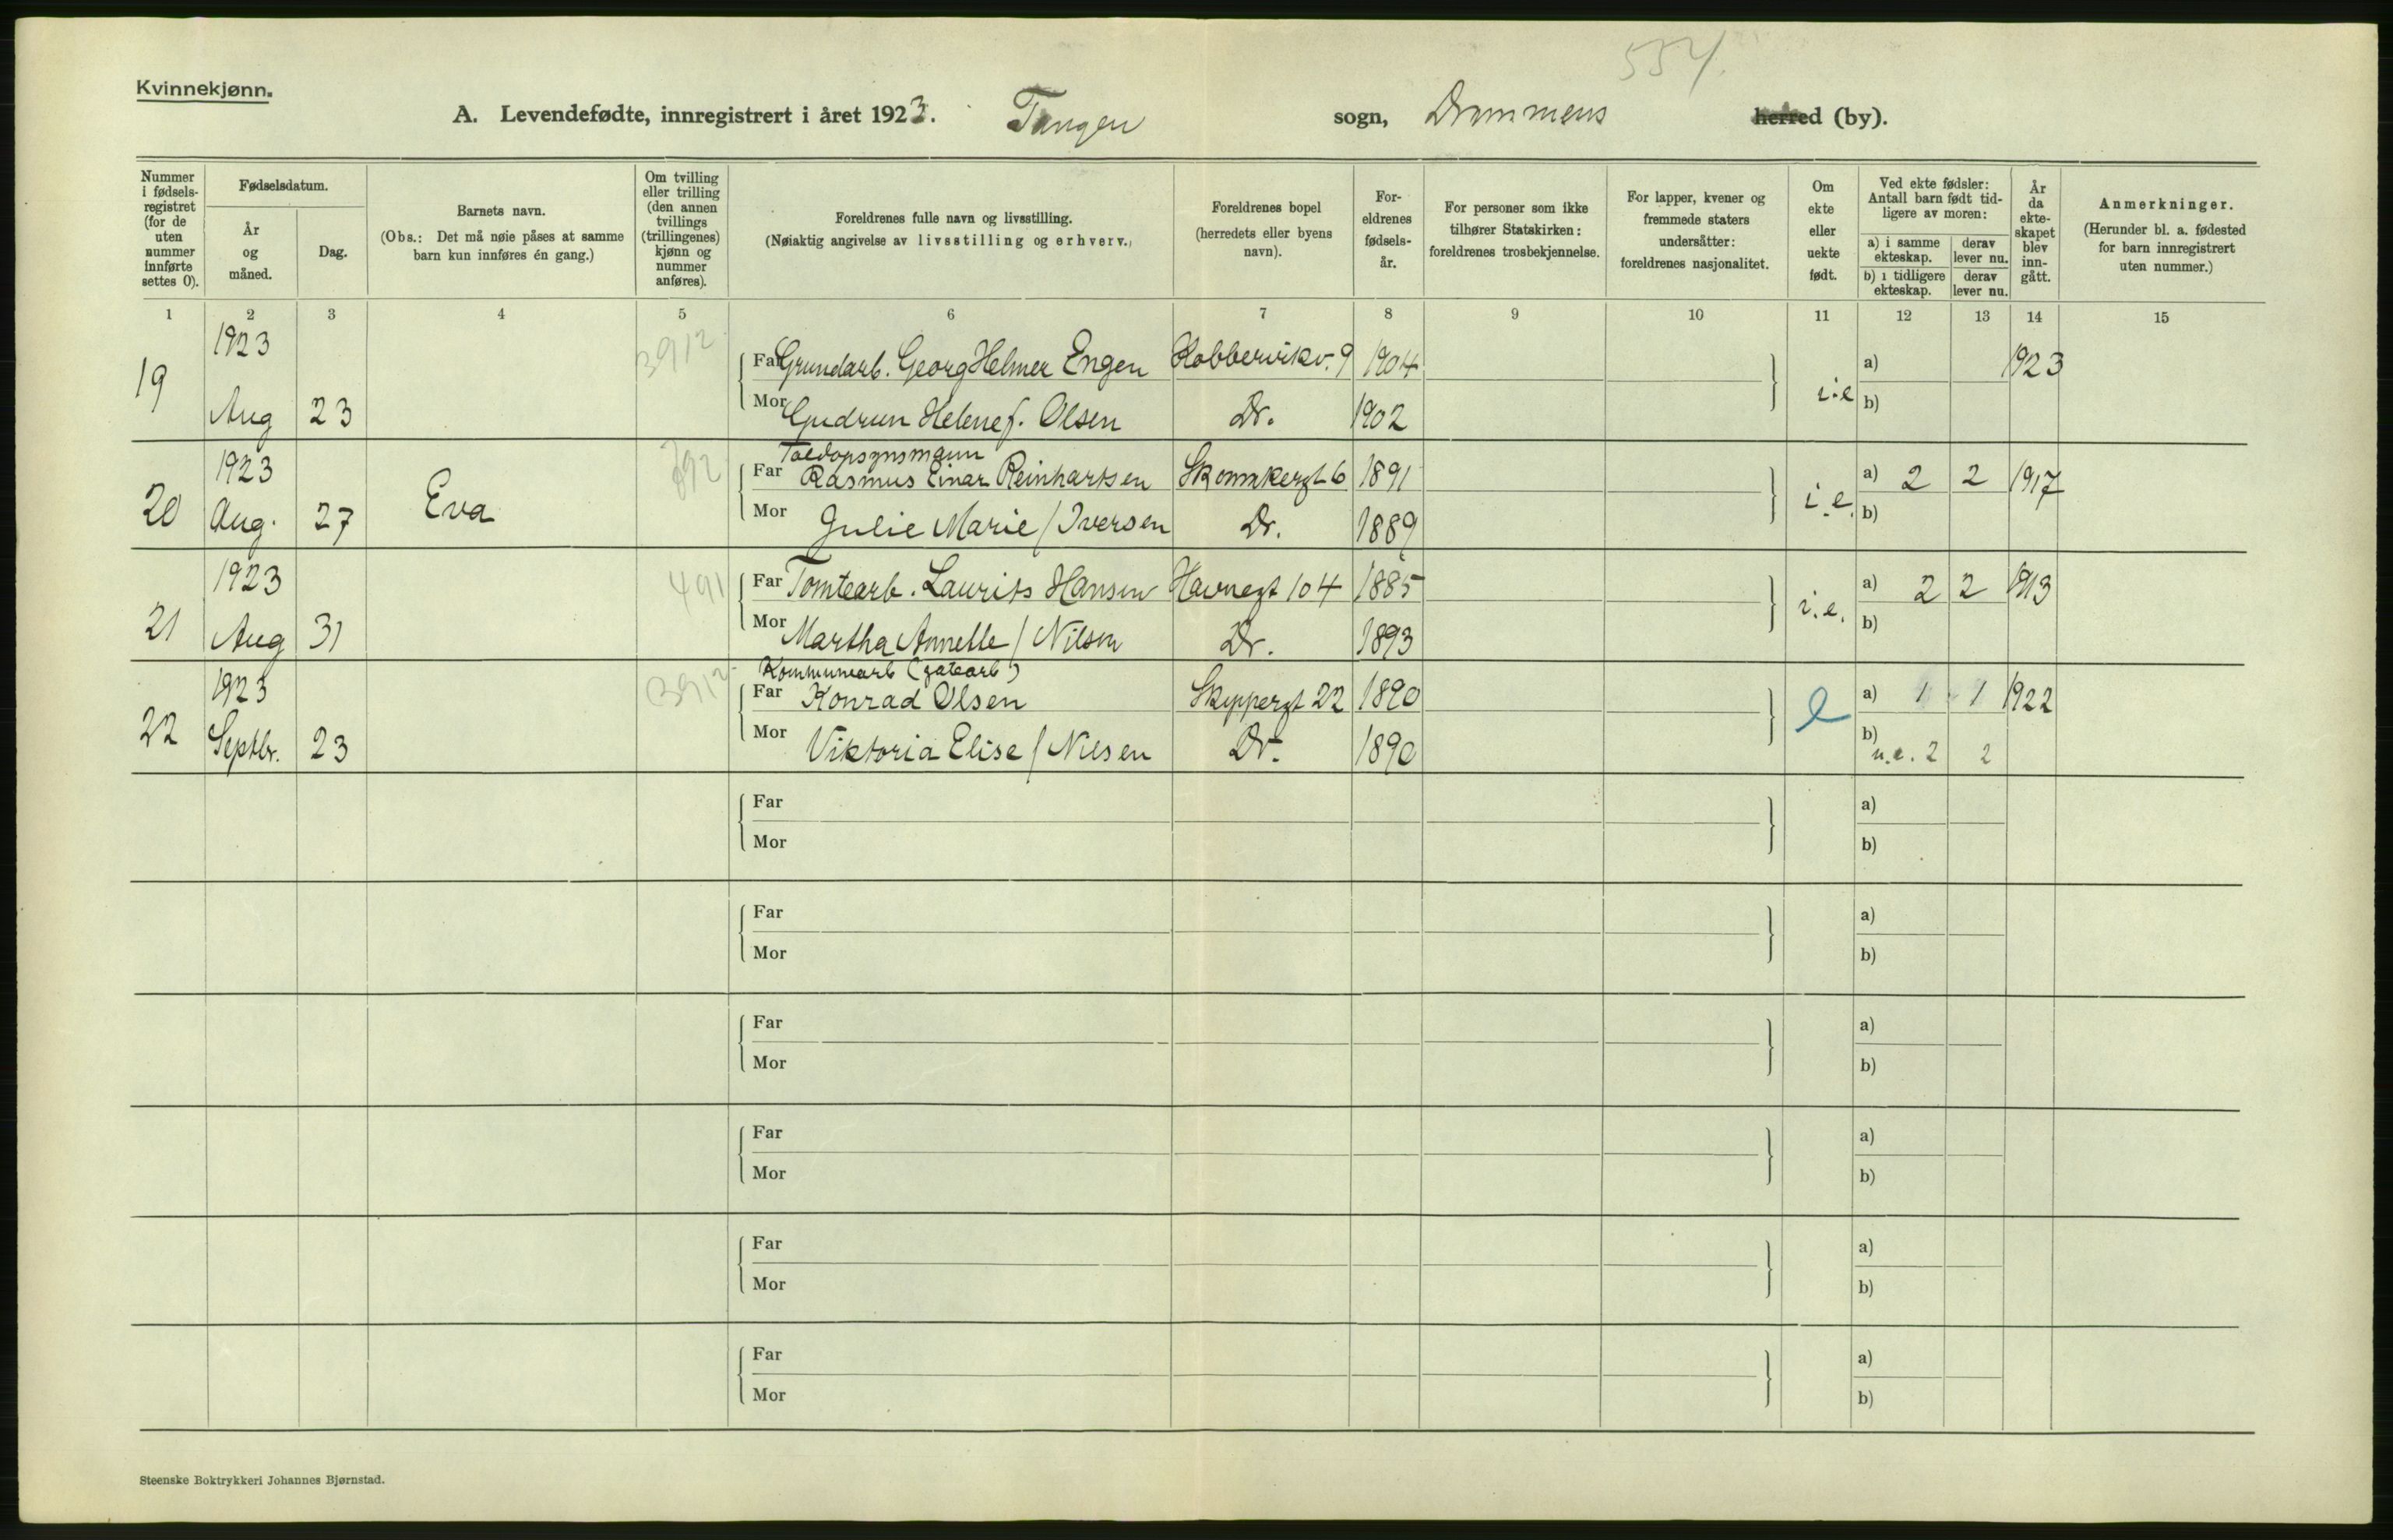 554.
Kvinnekjønn.
A. Levendefødte, innregistrert i året 1923. Tangen sogn, Drammens herred (by).
Nummer i fødselsregistret (for de uten nummer innførte settes 0).
Fødselsdatum.
År og måned.
Dag.
Barnets navn.
(Obs.: Det må nøie påses at samme barn kun innføres én gang.)
Om tvilling eller trilling (den annen tvillings (trillingenes) kjønn og nummer anføres).
Foreldrenes fulle navn og livsstilling.
(Nøiaktig angivelse av livsstilling og erhverv.)
Foreldrenes bopel
(herredets eller byens navn).
Foreldrenes fødselsår.
For personer som ikke tilhører Statskirken: foreldrenes trosbekjennelse.
For lapper, kvener og fremmede staters undersåtter: foreldrenes nasjonalitet.
Om ekte eller uekte født.
Ved ekte fødsler: Antall barn født tidligere av moren:
a) i samme ekteskap. derav lever nu.
b) i tidligere ekteskap. derav lever nu.
År da ekteskapet blev inngått.
Anmerkninger.
(Herunder bl. a. fødested for barn innregistrert uten nummer.)
1 2 3 4 5 6 7 8 9 10 11 12 13 14 15
19 1923 Aug 23 3912 Far Grundarb. Georg Helmer Engen Kobbervikv. 9 1904 i.e a) 1923
Mor Gudrun Helene f. Olsen Dr. 1902 b)
Toldopsynsmann
20 1923 Aug. 27 Eva 392 Far Rasmus Einar Reinhartsen Skomakergt 6 1891 i.e. a) 2 2 1917
Mor Julie Marie / Iversen Dr. 1889 b)
21 1923 Aug 31 491 Far Tomtearb. Laurits Hansen Havnegt 104 1885 i.e. a) 2 2 1913
Mor Martha Annette / Nilsen Dr. 1893 b)
Kommunearb (gatearb)
22 1923 Septbr. 23 3912 Far Konrad Olsen Skippergt 22 1890 e a) 1 1 1922
Mor Viktoria Elise / Nilsen Dr. 1890 b) u.e. 2 2
Far a)
Mor b)
Far a)
Mor b)
Far a)
Mor b)
Far a)
Mor b)
Far a)
Mor b)
Far a)
Mor b)
Steenske Boktrykkeri Johannes Bjørnstad.